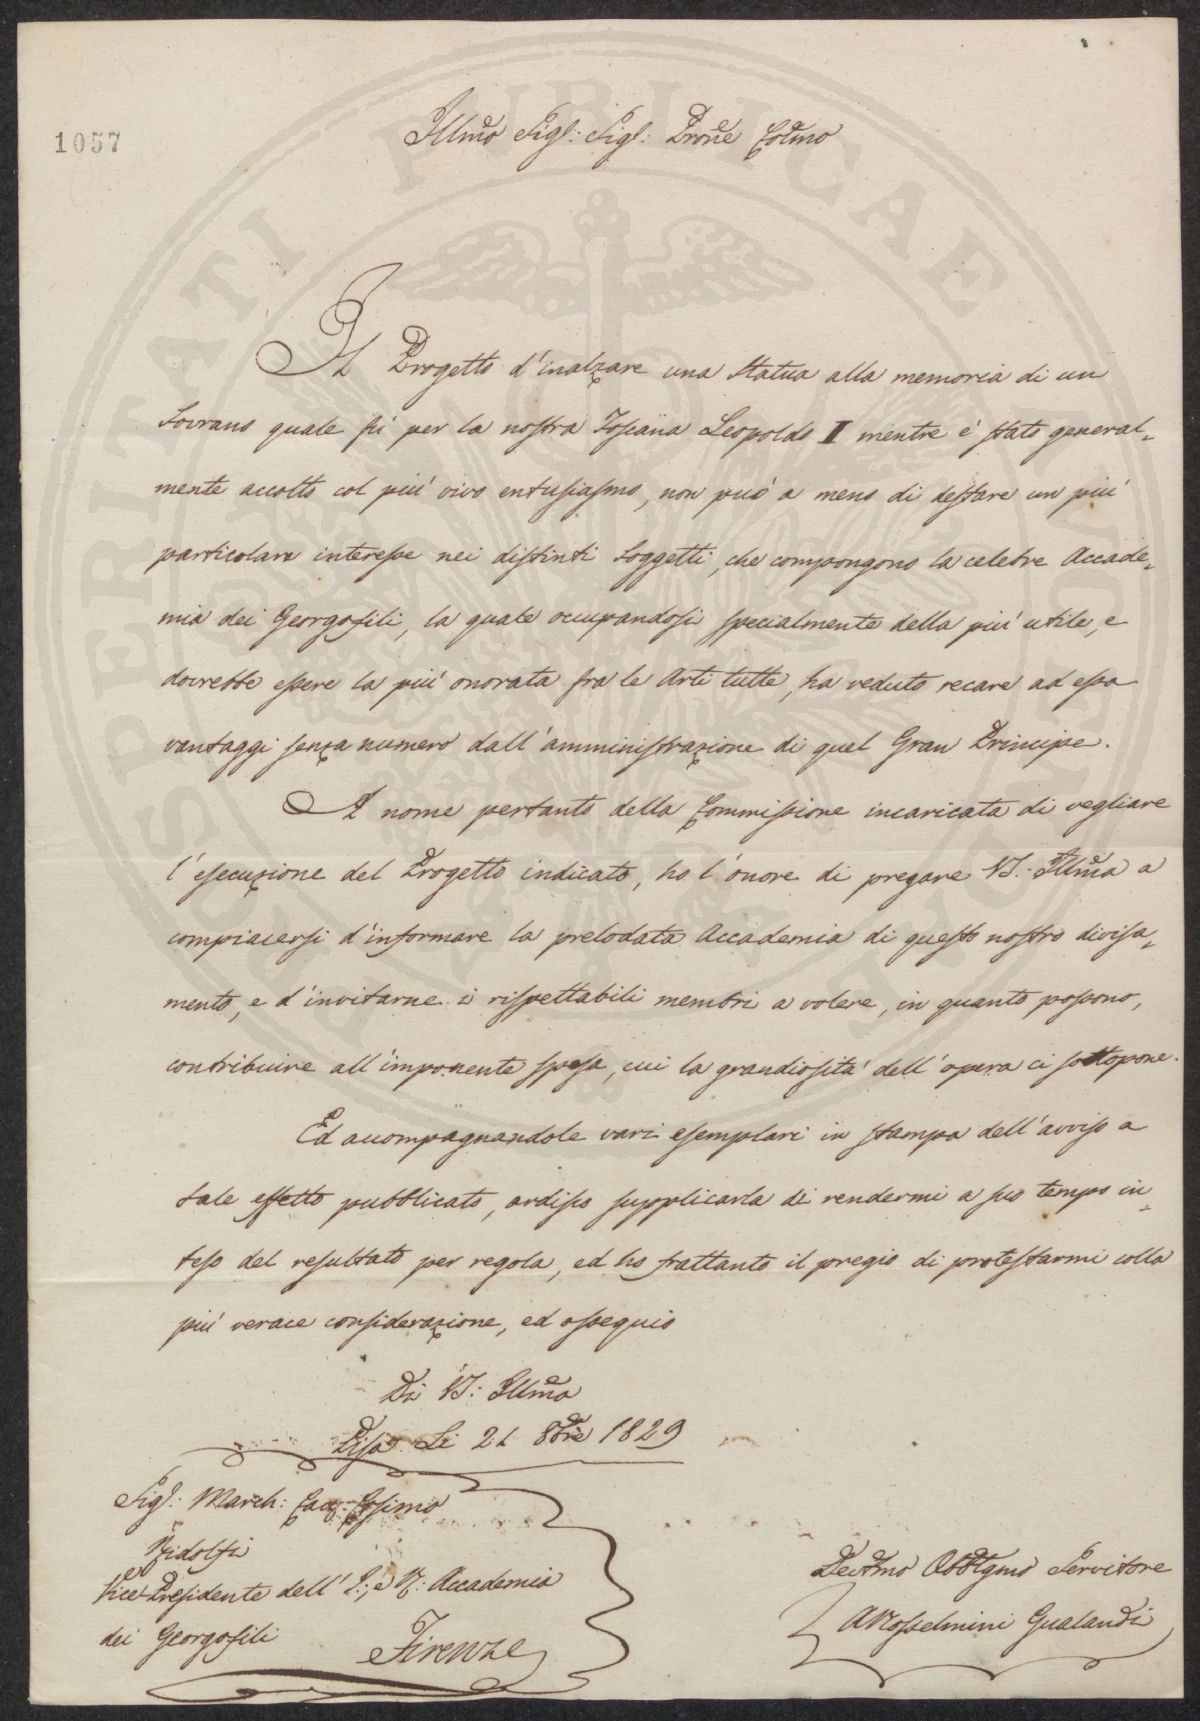 1057
Illmo Sigr: Sigr: Prone Colmo
Il Progetto d'inalzare una Statua alla memoria di un
Sovrano quale fù per la nostra Toscana Leopoldo I mentre è stato general-
mente accolto col più vivo entusiasmo, non può a meno di destare un più
particolare interesse nei distinti Soggetti, che compongono la celebre Accade-
mia dei Georgofili, la quale occupandosi specialmente della più utile, e
dovrebbe essere la più onorata fra le Arti tutte, ha veduto recare ad essa
vantaggi senza numero dall'amministrazione di quel Gran Principe.
A nome pertanto della Commissione incaricata di vegliare
l'esecuzione del Progetto indicato, ho l'onore di pregare VS: Illma a
compiacersi d'informare la prelodata Accademia di questo nostro divisa-
mento, e d'invitarne i rispettabili membri a volere, in quanto possono,
contribuire all'imponente spesa, cui la grandiosità dell'opera ci sottopone.
Ed accompagnandole vari esemplari in stampa dell'avviso a
tale effetto pubblicato, ardisco supplicarla di rendermi a suo tempo in-
teso del resultato per regola, ed ho frattanto il pregio di protestarmi colla
più verace considerazione, ed ossequio
Di VS: Illma
Pisa Li 21 8bre 1829
Sigr: March: Cav: Cosimo
Ridolfi
Vice-Presidente dell'I: e R: Accademia
dei Georgofili
Firenze
Devmo Obblgmo Servitore
A Rosselmini Gualandi
PROSPERITATI PUBLICAE AUGENDAE